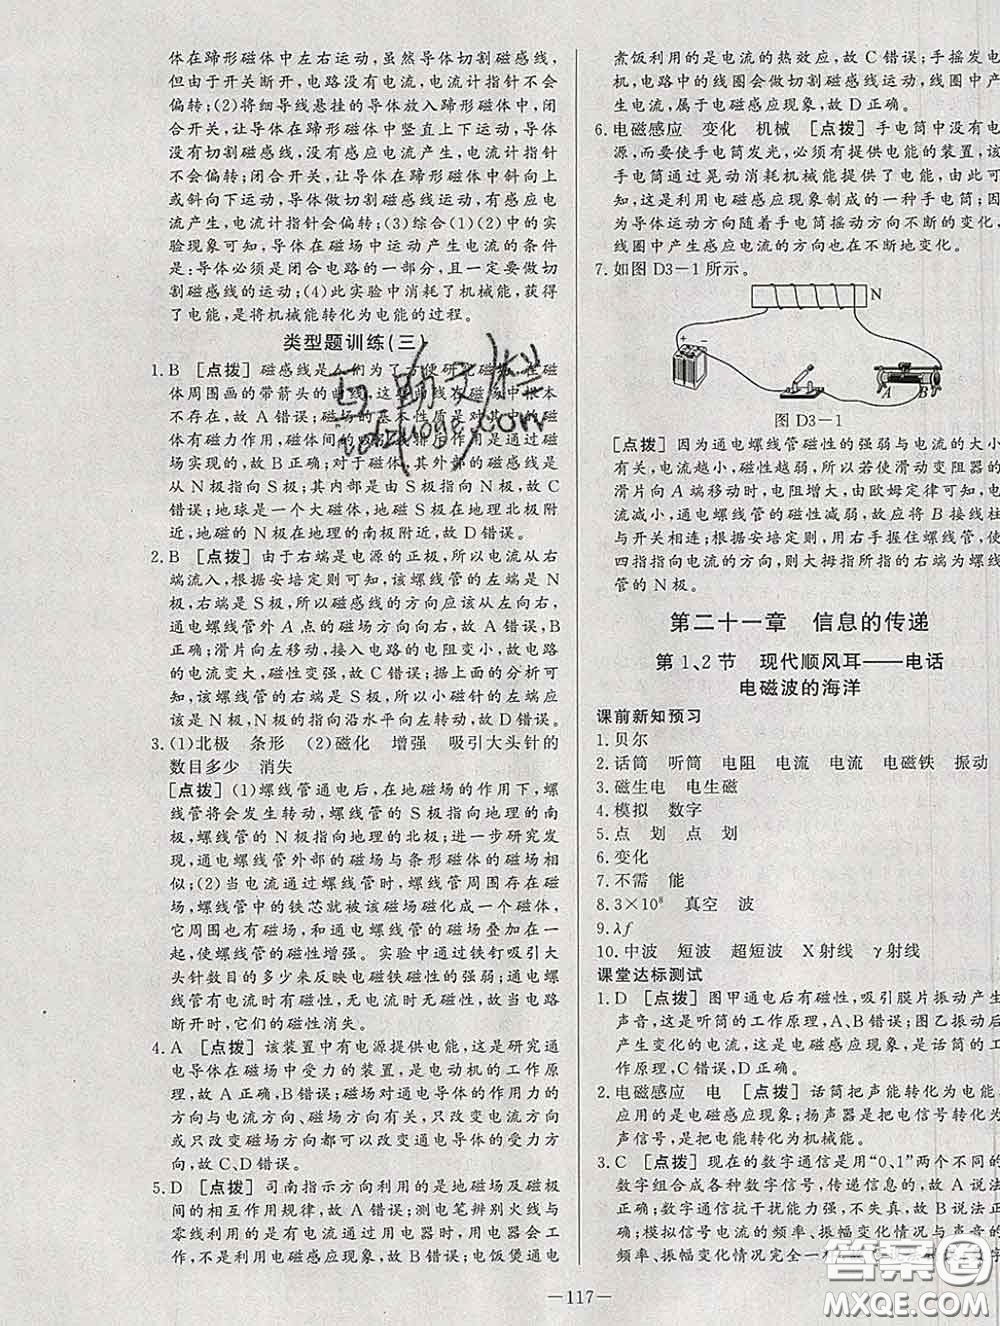 体在蹄形磁体中左右运动,虽然导体切割磁感线,
但由于开关断开,电路中没有电流,电流计指针不会
偏转;(2)将细导线悬挂的导体放入蹄形磁体中,闭
合开关,让导体在蹄形磁体中竖直上下运动,导体
没有切割磁感线,没有感应电流产生,电流计指针
不会偏转;闭合开关,让导体在蹄形磁体中斜向上
或斜向下运动,导体做切割磁感线运动,有感应电
流产生,电流计指针会偏转;(3)综合(1)(2)中的实
验现象可知,导体在磁场中运动产生电流的条件
是:导体必须是闭合电路的一部分,且一定要做切
割磁感线的运动;(4)此实验中消耗了机械能,获得
了电能,是将机械能转化为电能的过程。
类型题训练(三)
1.B [点拨] 磁感线是人们为了方便研究磁场,在磁
体周围画的带箭头的曲线,这些线在磁场中根本
不存在,故A错误;磁场的基本性质是对其中的磁
体有磁力作用,磁体间的吸引和排斥作用是通过磁
场实现的,故B正确;对于磁体,其外部的磁感线是
从N极指向S极;其内部是由S极指向N极,故C
错误;地球是一个大磁体,地磁S极在地理北极附
近,地磁的N极在地理的南极附近,故D错误。
2.B [点拨] 由于右端是电源的正极,所以电流从右
端流入,根据安培定则可知,该螺线管的左端是N
极,右端是S极,所以磁感线的方向应该从左向右,
通电螺线管外A点的磁场方向向右,故A错误,B
正确;滑片向左移动,接入电路的电阻变小,电路中
的电流变大,磁性变强,故C错误;据上面的分析可
知,该螺线管的右端是S极,所以小磁针的左端应
该是N极,N极的指向沿水平向左转动,故D错误。
3.(1)北极 条形 (2)磁化 增强 吸引大头针的
数目多少 消失
[点拨] (1)螺线管通电后,在地磁场的作用下,螺
线管将会发生转动,螺线管的S极指向地理的南
极,螺线管的N极指向地理的北极;进一步研究发
现,通电螺线管外部的磁场与条形磁体的磁场相
似;(2)当电流通过螺线管时,螺线管周围存在磁
场,螺线管中的铁芯就被该磁场磁化成一个磁体,
它周围也有磁场,和通电螺线管的磁场叠加在一
起,使螺线管的磁性增强。实验中通过铁钉吸引大
头针数目的多少来反映电磁铁磁性的强弱;通电螺
线管有电流时有磁性,无电流时无磁性,故当电路
断开时,它们的磁性消失。
4.A [点拨] 该装置中有电源提供电能,这是研究通
电导体在磁场中受力的装置,是电动机的工作原
理,故A正确,B错误;磁场对通电导体的作用力的
方向与电流方向、磁场方向有关,只改变电流方向
或只改变磁场方向都可以改变通电导体的受力方
向,故C、D错误。
5.D [点拨] 司南指示方向利用的是地磁场及磁极
间的相互作用规律,故A错误;测电笔辨别火线与
零线利用的是有电流通过用电器时,用电器会工
作,不是利用电磁感应现象,故B错误;电饭煲通电
煮饭利用的是电流的热效应,故C错误;手摇发电
机,电路中的线圈会做切割磁感线运动,线圈中产
生电流,属于电磁感应现象,故D正确。
6.电磁感应 变化 机械 [点拨] 手电筒中没有电
源,而要使手电筒发光,必须有提供电能的装置,该
手电筒通过晃动消耗机械能产生了电能,由此可
知,这是利用电磁感应现象制成的一种手电筒;因
为导体运动方向随着手电筒摇动方向不断的变化,
线圈中产生感应电流的方向也在不断地变化。
7.如图D3-1所示。
N
+
-
A B
图D3-1
[点拨] 因为通电螺线管磁性的强弱与电流的大小
有关,电流越小,磁性越弱,所以若使滑动变阻器的
滑片向A端移动时,电阻增大,由欧姆定律可知,电
流减小,通电螺线管的磁性减弱,故应将B接线柱
与开关相连;根据安培定则,用右手握住螺线管,使
四指指向电流的方向,则大拇指所指的右端为螺线
管的N极。
第二十一章 信息的传递
第1、2节 现代顺风耳——电话
电磁波的海洋
课前新知预习
1.贝尔
2.话筒 听筒 电阻 电流 电流 电磁铁 振动
3.磁生电 电生磁
4.模拟 数字
5.点 划 点 划
6.变化
7.不需 能
8.3×10⁸ 真空 波
9.λf
10.中波 短波 超短波 X射线 γ射线
课堂达标测试
1.D [点拨] 图甲通电后有磁性,吸引膜片振动产生
声音,这是听筒的工作原理,A、B错误;图乙振动后
产生变化的电流,这是电磁感应现象,是话筒的工作
原理,C错误,D正确。
2.电磁感应 电 [点拨] 话筒把声能转化为电能,
应用的是电磁感应现象;扬声器是把电信号转化为
声信号,是把电能转化为机械能。
3.C [点拨] 现在的数字通信是用“0、1”两个不同的
数字组合成各种数字信号,传递信息的,故A说法
正确;数字通信抗干扰能力强,不失真,故B说法正
确;模拟信号电流的频率、振幅变化情况与声音的
频率、振幅变化情况完全一样
—117—
答案圈
MXQE.COM